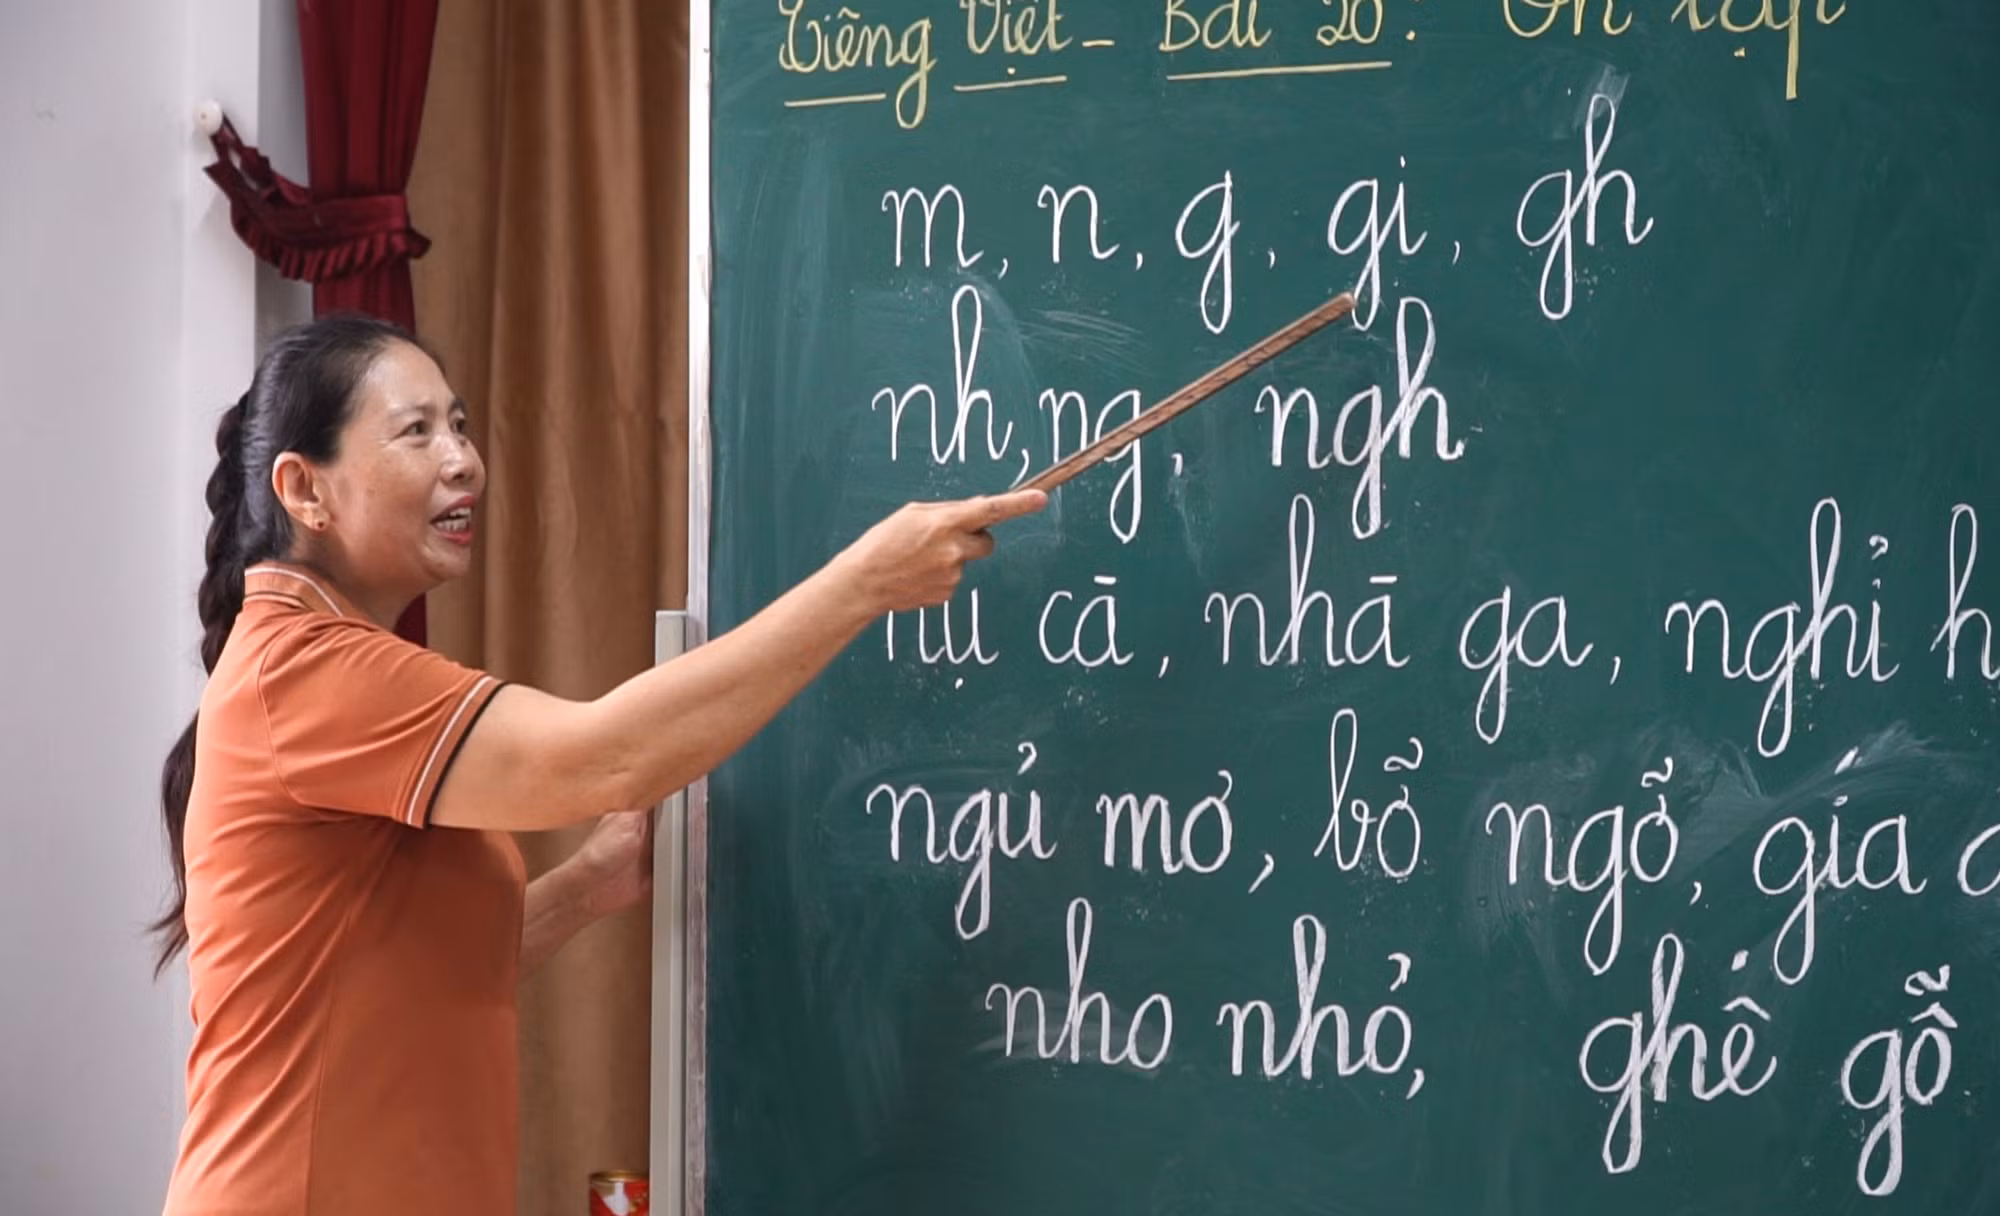 Tiếng Việt - Bài 20: Ôn tập
m, n, g, gi, gh
nh, ng, ngh
nụ cà, nhà ga, nghỉ
ngủ mơ, bỡ ngỡ, giá
nho nhỏ, ghế gỗ